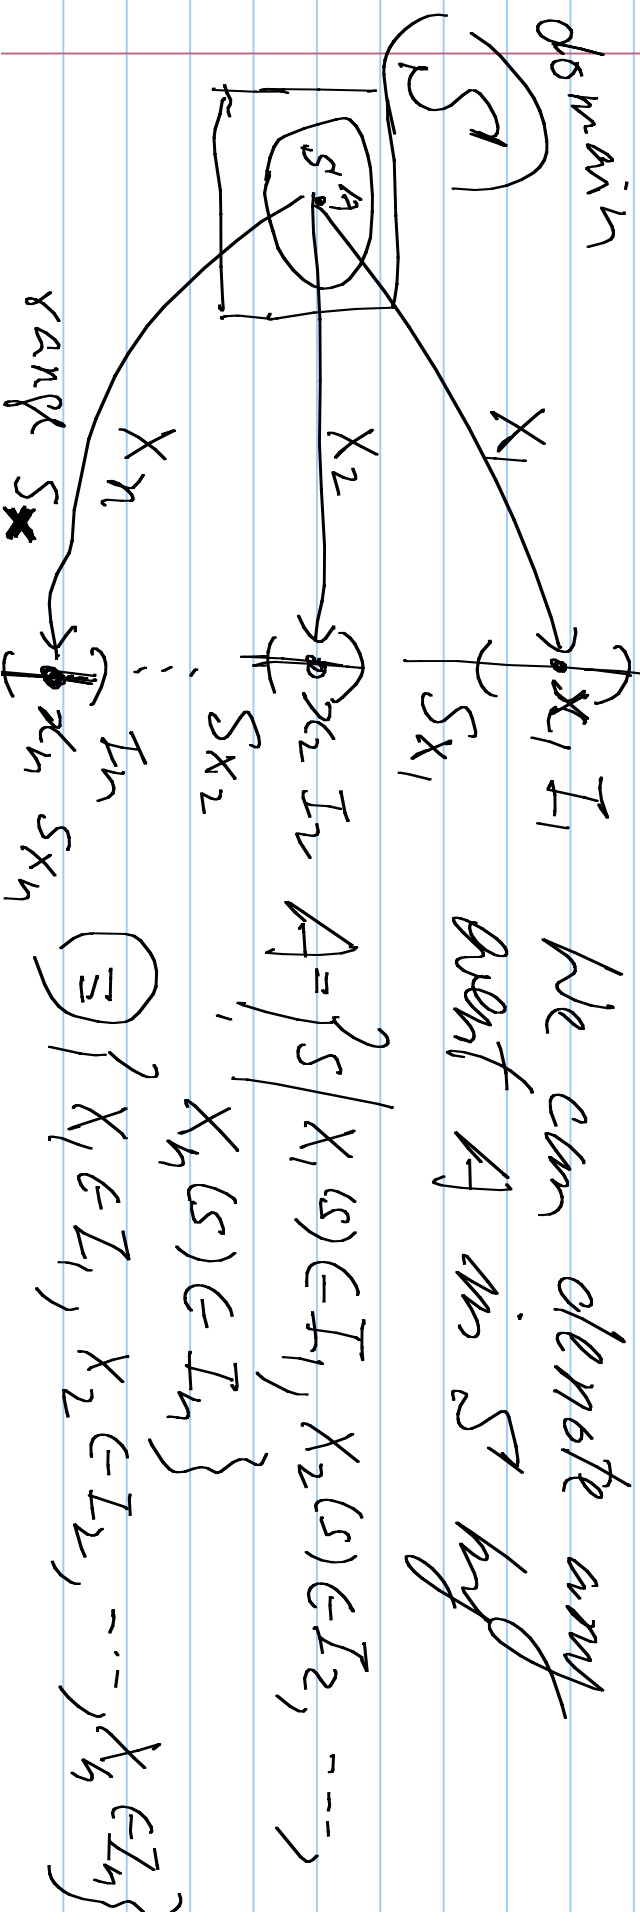 domain
S
s A
X₁
X₂
Xₙ
range Sₓ
x₁ I₁
Sx₁
x₂ I₂
Sx₂
xₙ
Iₙ
Sxₙ
We can denote any
event A in S by
A = {s | X₁(s) ∈ I₁, X₂(s) ∈ I₂, ---,
Xₙ(s) ∈ Iₙ}
≡ {X₁ ∈ I₁, X₂ ∈ I₂, ---, Xₙ ∈ Iₙ}